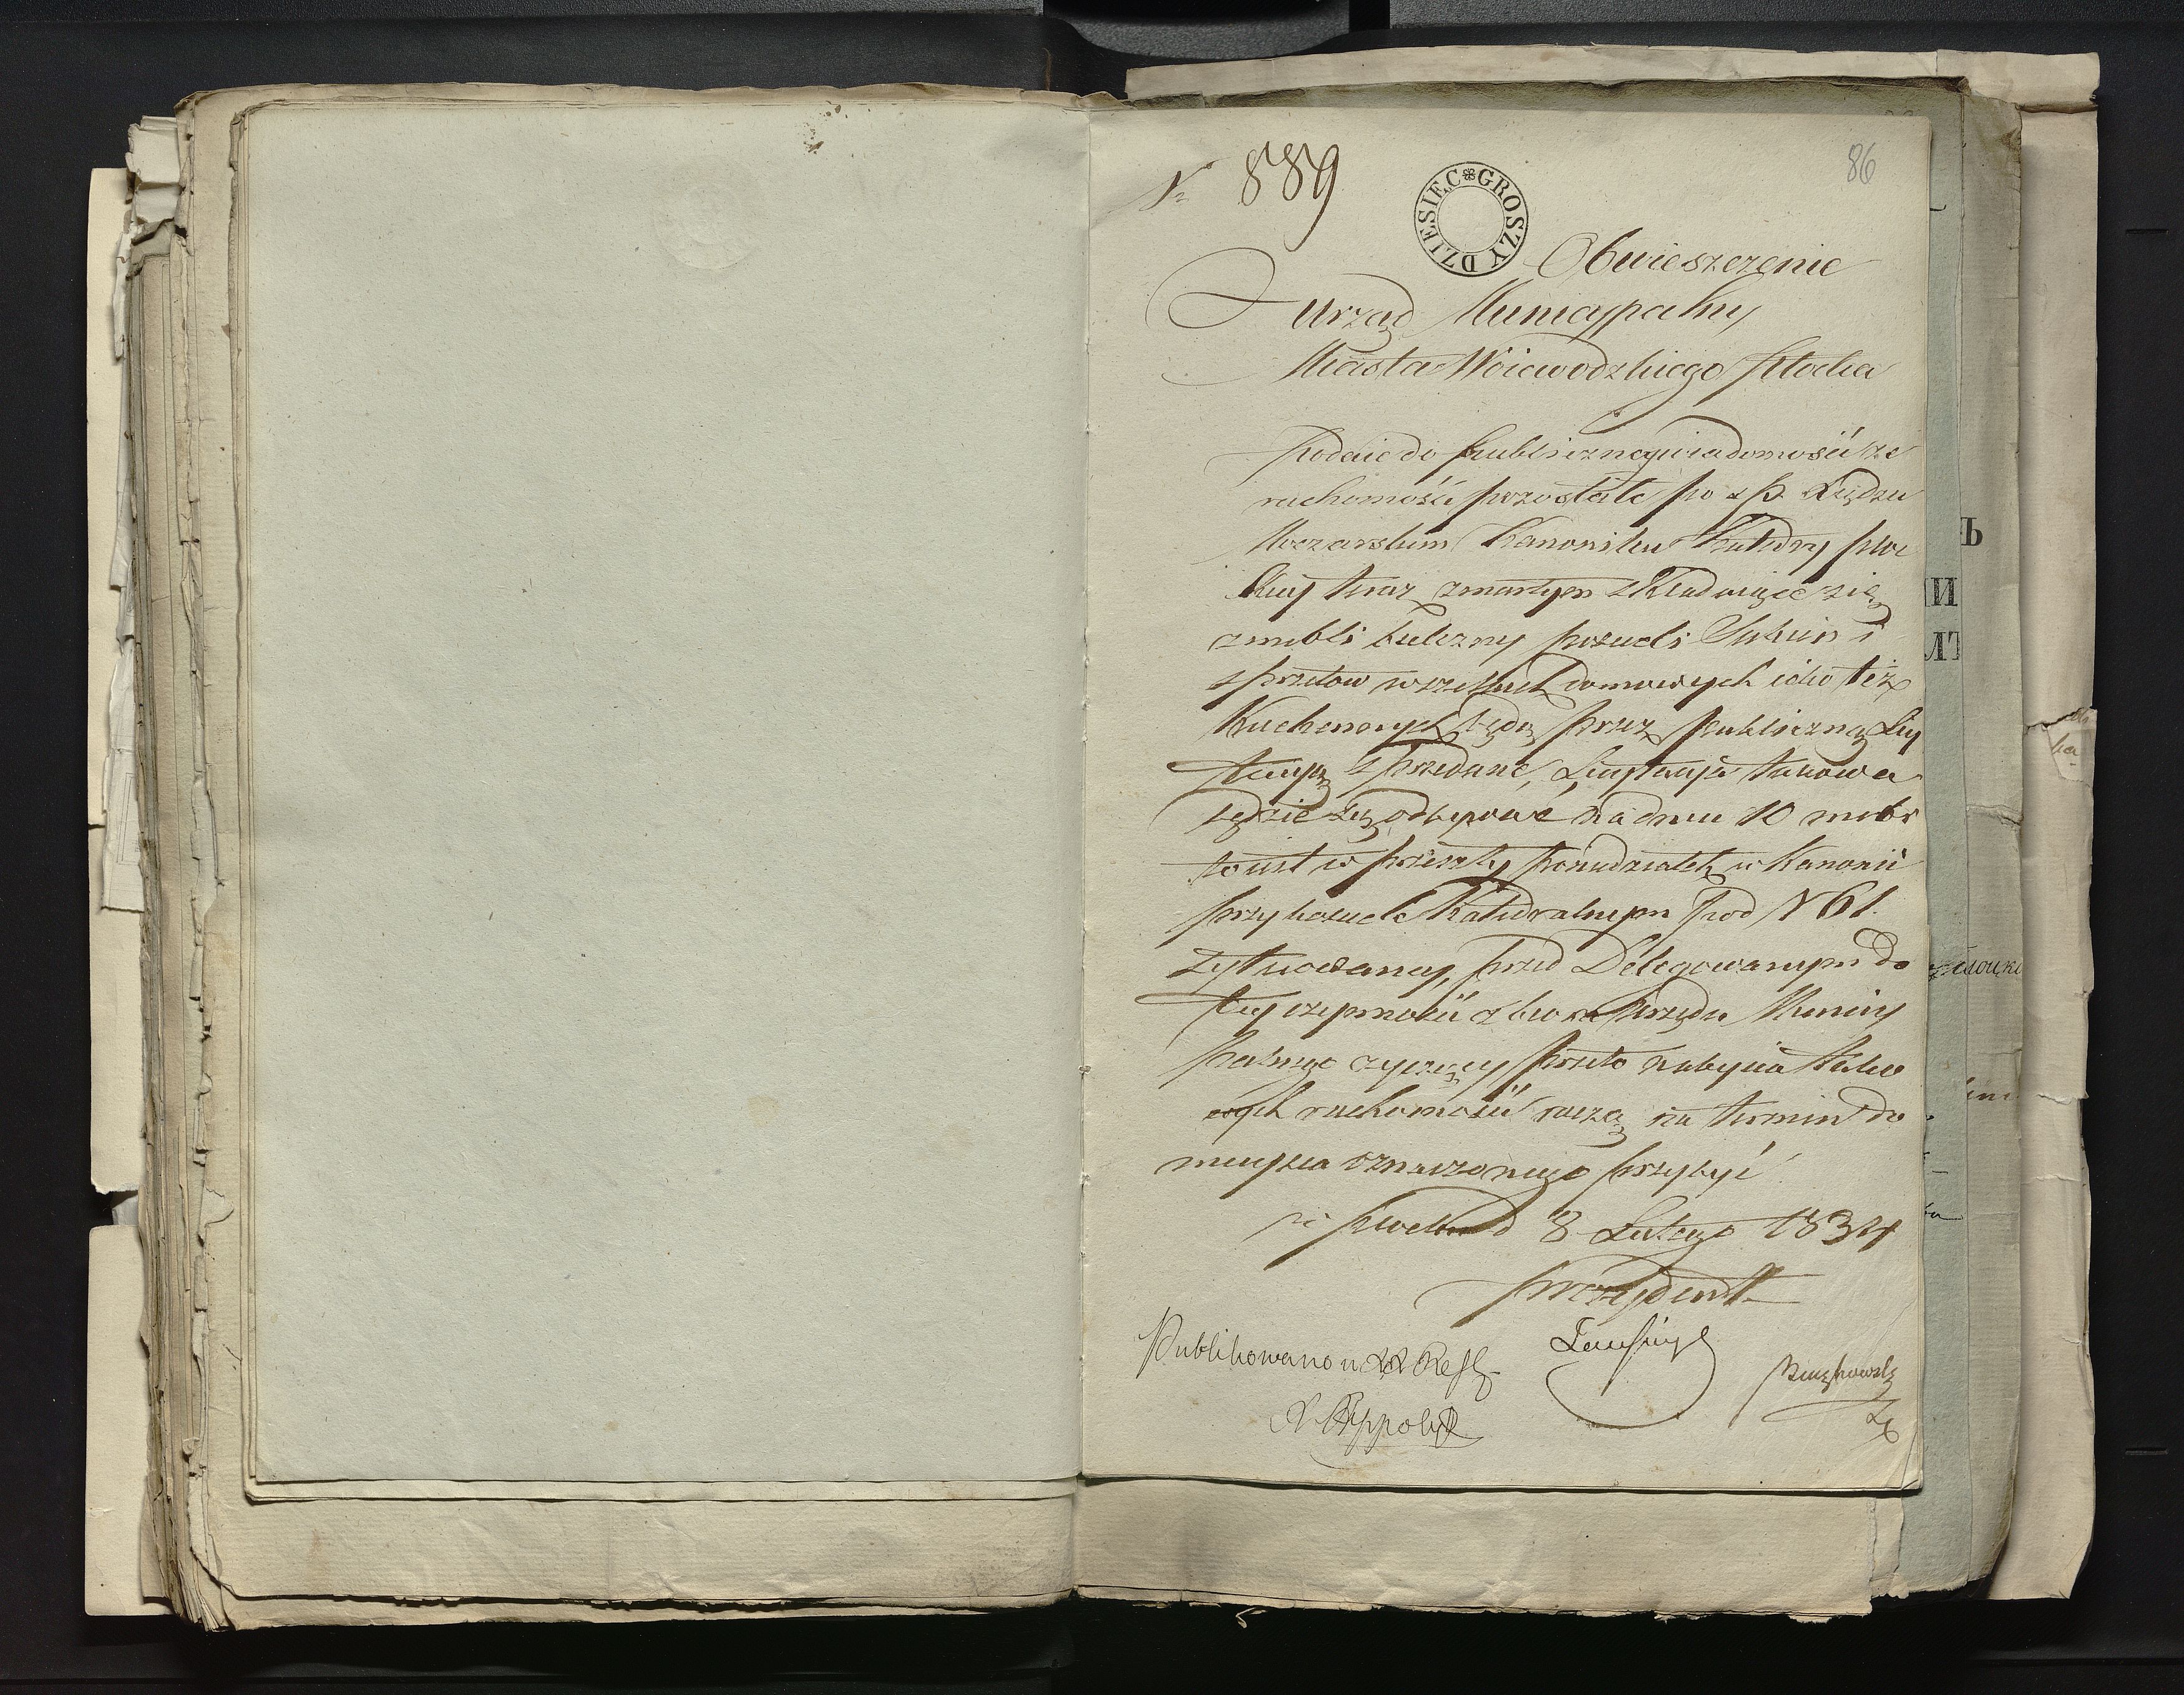 86
№ 889
DZIESIĘC GROSZY
Obwieszczenie
Urząd Municypalny
Miasta Woiewodzkiego Płocka
Podaie do Publiczney wiadomości że
ruchomości pozostałe po ś.p. Xiędzu
Kanoniku Katedry Płoc
kiey teraz zmarłym składaiące się
z mebli bielizny pościeli Sukien i
sprzętow wszelkich domowych iako też
Kuchennych będą przez Publiczną Licy
tacyą sprzedane, Licytacyia takowa
będzie się odbywać na dniu 10 m
to iest w przyszły poniedziałek w Kanonii
przy kościele Katedralnym pod N 61.
Zytuowaney, przed Delegowanym do
tey czynności z biora Urzędu Municy
palnego życzący przeto nabycia tako
wych ruchomości raczą na termin do
mieysca oznaczonego przybyć
w Płocku d 8 Lutego 1834
Prezydent
Publikowano